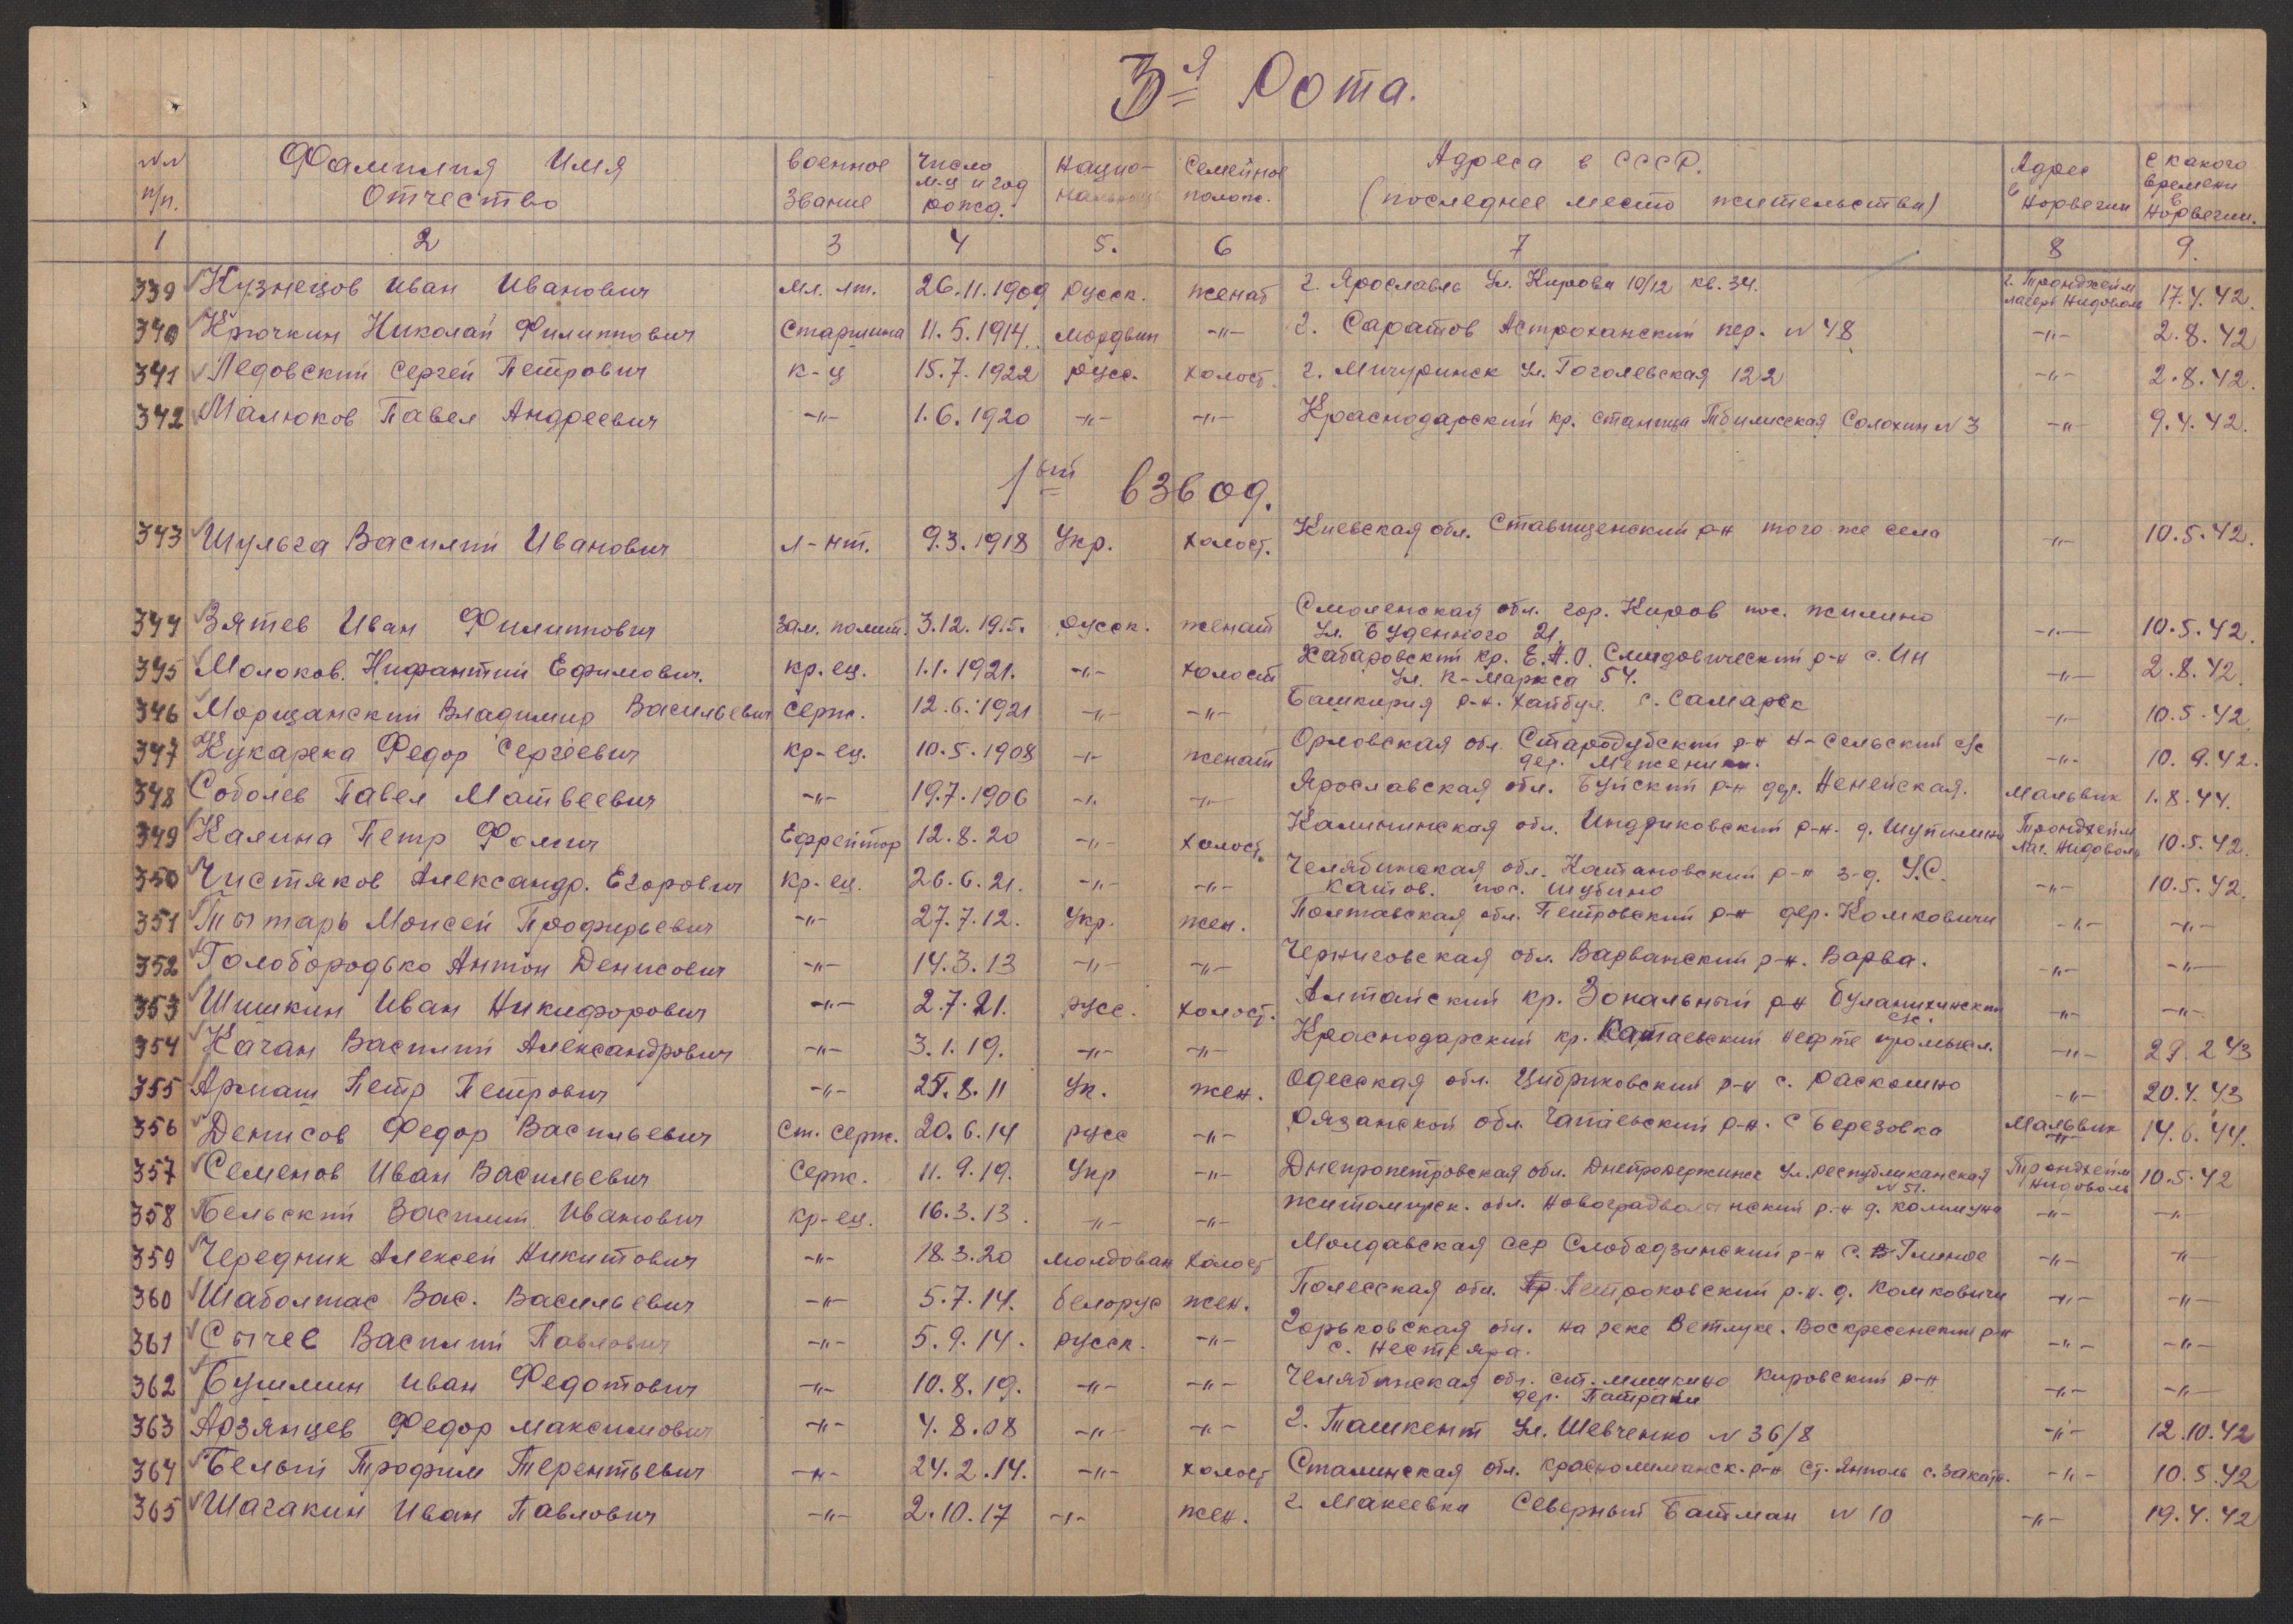 3я Рота.
№№ п/п. Фамилия Имя Отчество военное звание Число м-ц и год рожд. Нацио- Семейное полож. Адреса в СССР. (последнее место жительства) Адрес в Норвегии с какого времени в Норвегии.
1 2 3 4 5. 6 7 8 9.
339 Кузнецов Иван Иванович мл. лт. 26.11.1909 русск. женат г. Ярославль Ул. Кирова 10/12 кв. 34. г. Тронджейм лагерь Нидоволь 17.4.42.
340 Крючкин Николай Филиппович Старшина 11.5.1914. мордвин -"- г. Саратов Астроханский пер. №48 -"- 2.8.42
341 Ледовский Сергей Петрович к-ц 15.7.1922 русс. холост. г. Мичуринск Ул. Гоголевская 122 -"- 2.8.42.
342 Малюков Павел Андреевич -"- 1.6.1920 -"- -"- Краснодарский кр. станица Тбилисская Солохин №3 -"- 9.4.42.
1ый взвод.
343 Шульга Василий Иванович л-нт. 9.3.1918 Укр. холост. Киевская обл. Ставищенский р-н того же села -"- 10.5.42.
344 Зятев Иван Филиппович зам. полит. 3.12.19.5. русск. женат Смоленская обл. гор. Киров пос. жилино
Ул. Буденного 21. -"- 10.5.42.
345 Молоков. Нифантий Ефимович. кр.ец. 1.1.1921. -"- холост Хабаровский кр. Е.А.О. Смидовический р-н с. Ин
Ул. К-Маркса 54. -"- 2.8.42.
346 Морщанский Владимир Васильевич серж. 12.6.1921 -"- -"- Башкирия р-н. Хайбул. с. Самарск -"- 10.5.42
347 Кукарека Федор Сергеевич кр-ец. 10.5.1908 -"- женат Орловская обл. Стародубский р-н Н-сельский с/с
дер. Меженики. -"- 10.9.42.
348 Соболев Павел Матвеевич -"- 19.7.1906 -"- -"- Ярославская обл. Буйский р-н дер. Ненейская. Мальвик 1.8.44.
349 Калина Петр Фомич Ефрейтор 12.8.20 -"- холост. Калининская обл. Индриковский р-н. д. Шутилино Тронджейм лаг. Нидоволь 10.5.42.
350 Чистяков Александр. Егорович кр-ец. 26.6.21. -"- -"- Челябинская обл. Катановский р-н з-д. У.С.
катов. пос. Шубино -"- 10.5.42.
351 Пытарь Моисей Профирьевич -"- 27.7.12. Укр. жен. Полтавская обл. Петровский р-н дер. Комковичи -"- -"-
352 Голобородько Антон Денисович -"- 14.3.13 -"- -"- Черниговская обл. Варванский р-н. Варва. -"- -"-
353 Шишкин Иван Никифорович -"- 2.7.21. русс. холост. Алтайский кр. Зональный р-н Буланихинский
с/с. -"- -"-
354 Качан Василий Александрович -"- 3.1.19. -"- -"- Краснодарский кр. нефте промысл. -"- 29.2.43
355 Армаш Петр Петрович -"- 25.8.11 Ук. жен. Одесская обл. Цибриковский р-н с. раскошно -"- 20.4.43
356 Денисов Федор Васильевич Ст. серж. 20.6.14 русс -"- Рязанской обл. Чапаевский р-н. с Березовка Мальвик 14.6.44.
357 Семенов Иван Васильевич Серж. 11.9.19. Укр -"- Днепропетровская обл. Днепродержинск Ул. республиканская
№51. Тронджейм Нидоволь 10.5.42
358 Бельский Василий Иванович кр-ец. 16.3.13. -"- -"- Житомирск. обл. Новоградволынский р-н д. коммуна -"- -"-
359 Чередник Алексей Никитович -"- 18.3.20 молдован холост Молдавская ССР Слободзинский р-н с. Глиное -"- -"-
360 Шаболтас Вас. Васильевич -"- 5.7.14. белорус жен. Полесская обл. Петроковский р-н. д. Комковичи -"- -"-
361 Сычев Василий Павлович -"- 5.9.14. русск. -"- Горьковская обл. на реке Ветлуге. Воскресенский р-н
с. Нестяра. -"- -"-
362 Бушмин Иван Федотович -"- 10.8.19. -"- -"- Челябинская обл. ст. мишкино Кировский р-н
дер. Патраки -"- -"-
363 Арзянцев Федор Максимович -"- 4.8.08 -"- -"- г. Ташкент Ул. Шевченко №36/8 -"- 12.10.42
364 Белый Трофим Терентьевич -"- 24.2.14. -"- холост Сталинская обл. краснолиманск. р-н ст. Янполь с. Закатн. -"- 10.5.42
365 Шагакин Иван Павлович -"- 2.10.17 -"- жен. г. Макеевка Северный Батман №10 -"- 19.4.42